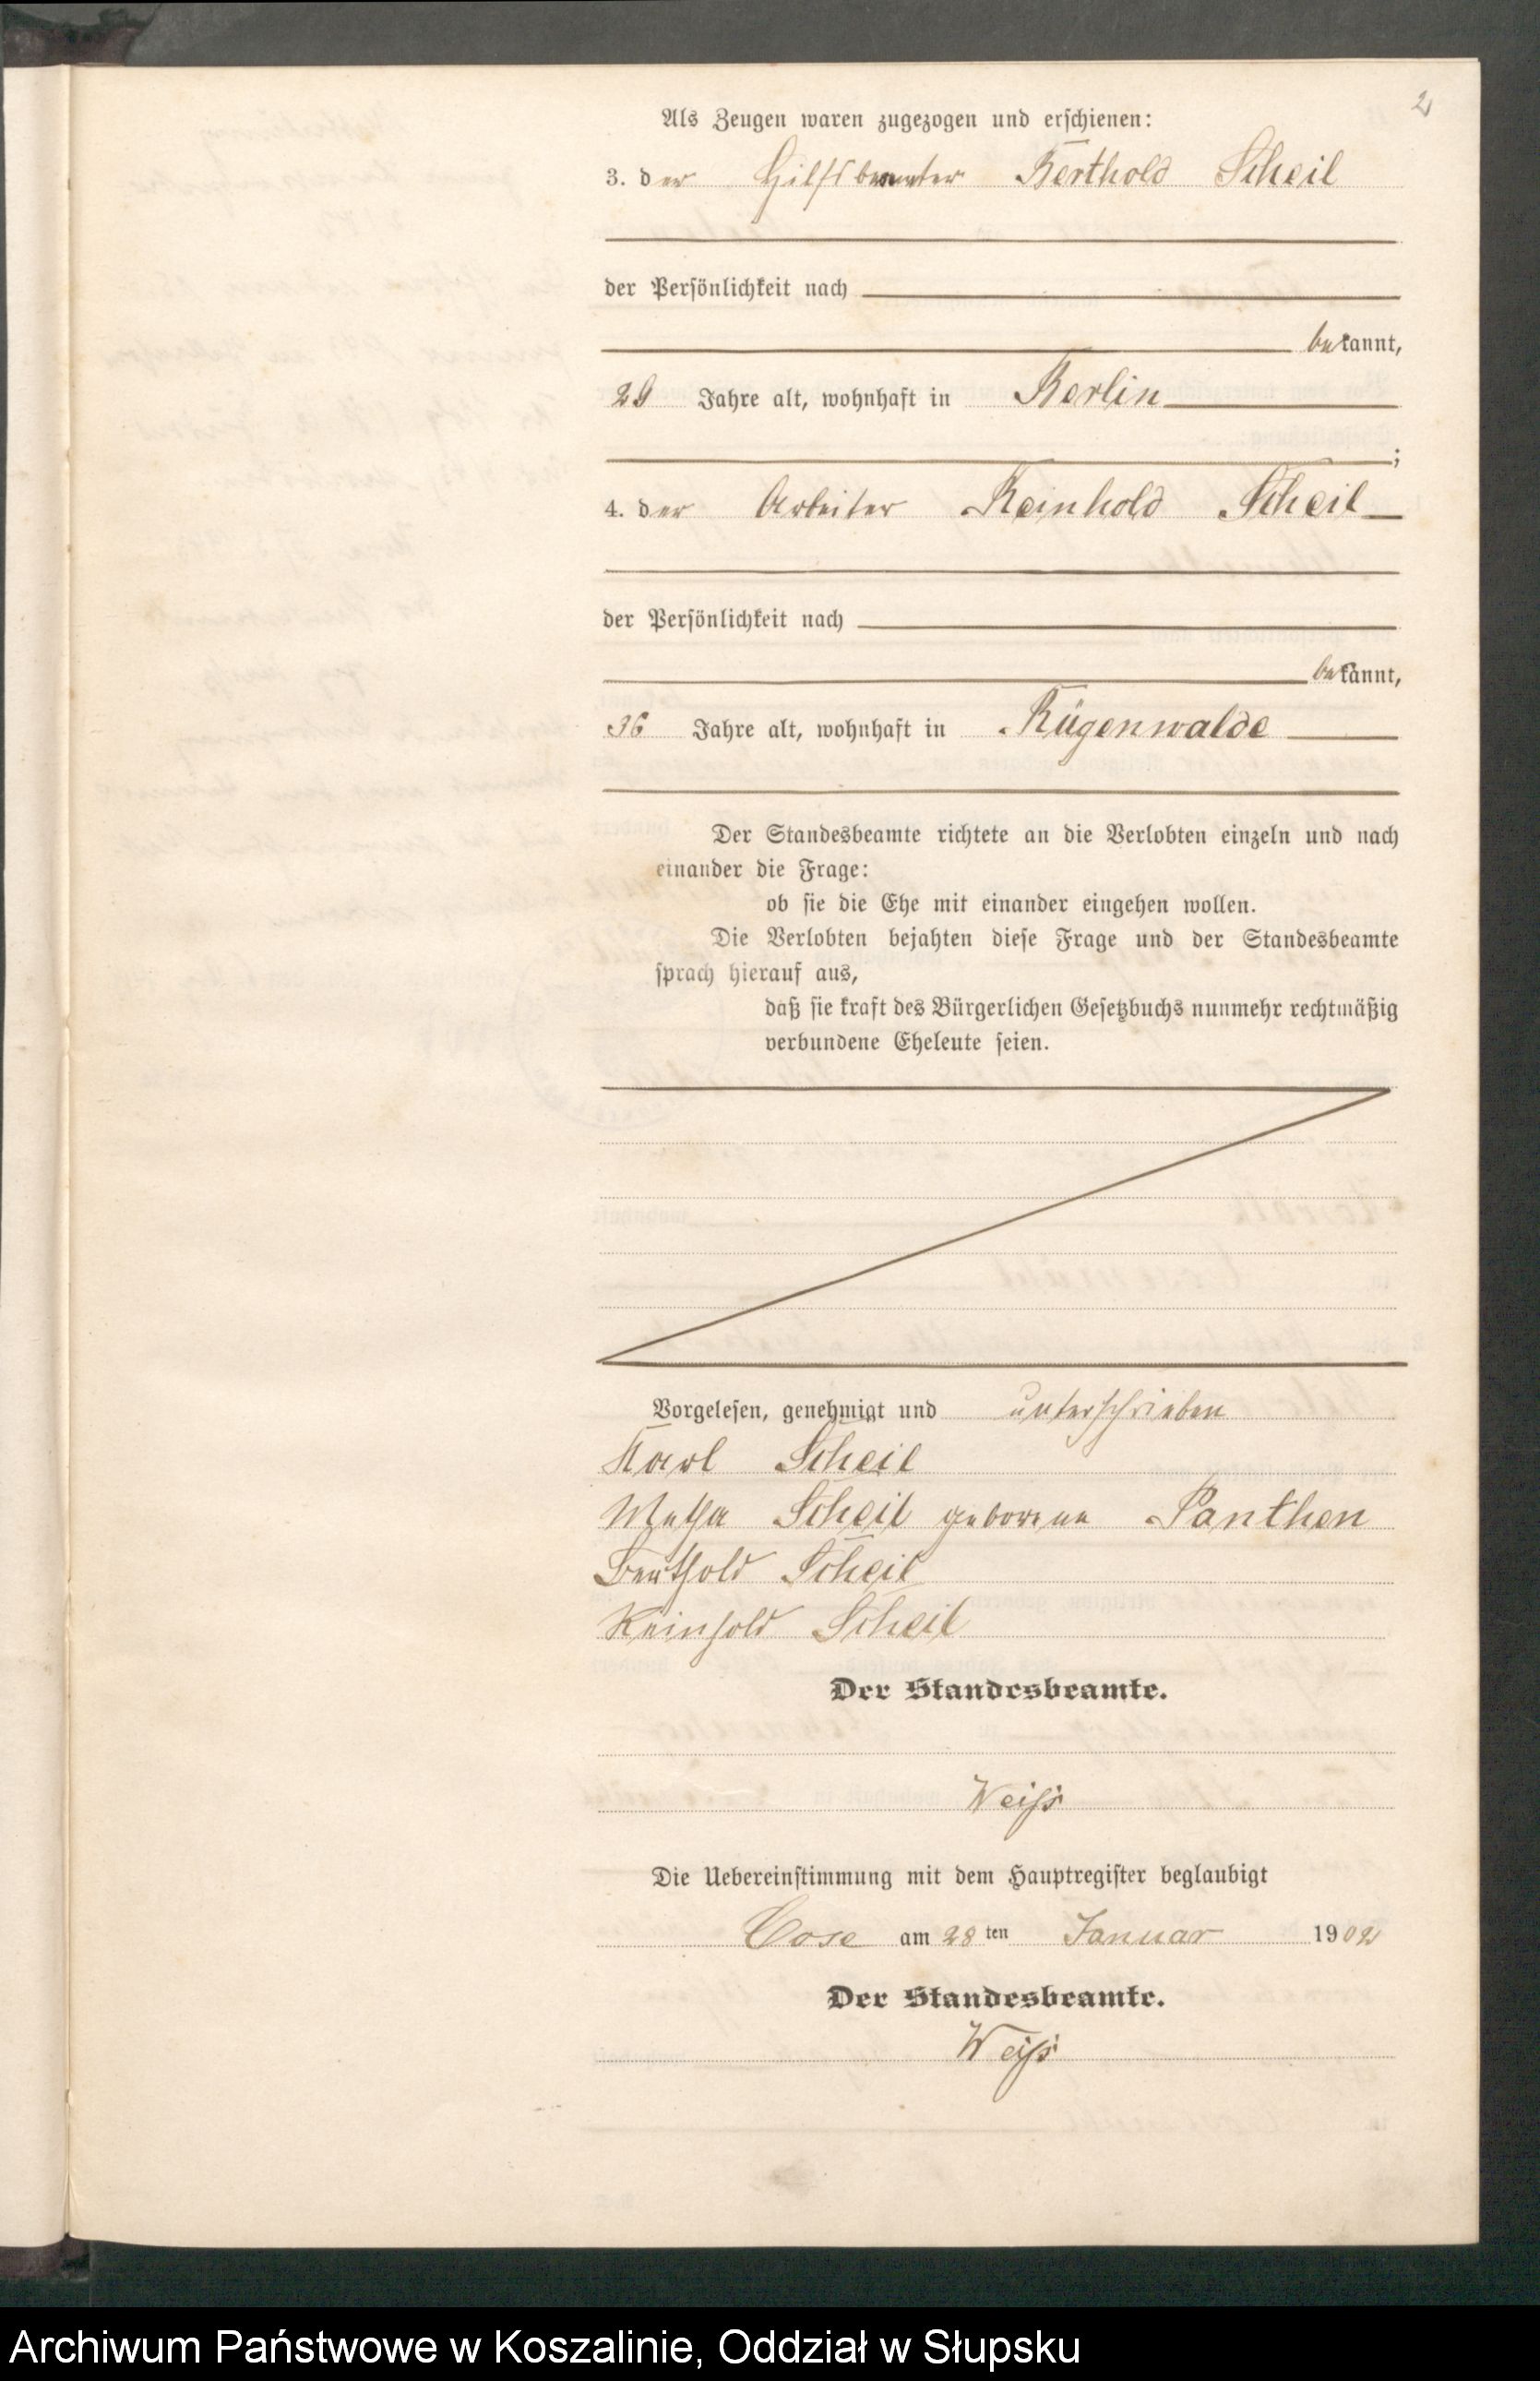 2
Als Zeugen waren zugezogen und erschienen:
3. der Hilfsbeamter Berthold Scheil
der Persönlichkeit nach
bekannt,
29 Jahre alt, wohnhaft in Berlin
;
4. der Arbeiter Reinhold Scheil
der Persönlichkeit nach
bekannt,
36 Jahre alt, wohnhaft in Rügenwalde
Der Standesbeamte richtete an die Verlobten einzeln und nach
einander die Frage:
ob sie die Ehe mit einander eingehen wollen.
Die Verlobten bejahten diese Frage und der Standesbeamte
sprach hierauf aus,
daß sie kraft des Bürgerlichen Gesetzbuchs nunmehr rechtmäßig
verbundene Eheleute seien.
Vorgelesen, genehmigt und unterschrieben
Karl Scheil
Scheil geborene Panthen
Berthold Scheil
Reinhold Scheil
Der Standesbeamte.
Weiß
Die Uebereinstimmung mit dem Hauptregister beglaubigt
Cose am 28 ten Januar 1902
Der Standesbeamte.
Weiß
Archiwum Państwowe w Koszalinie, Oddział w Słupsku